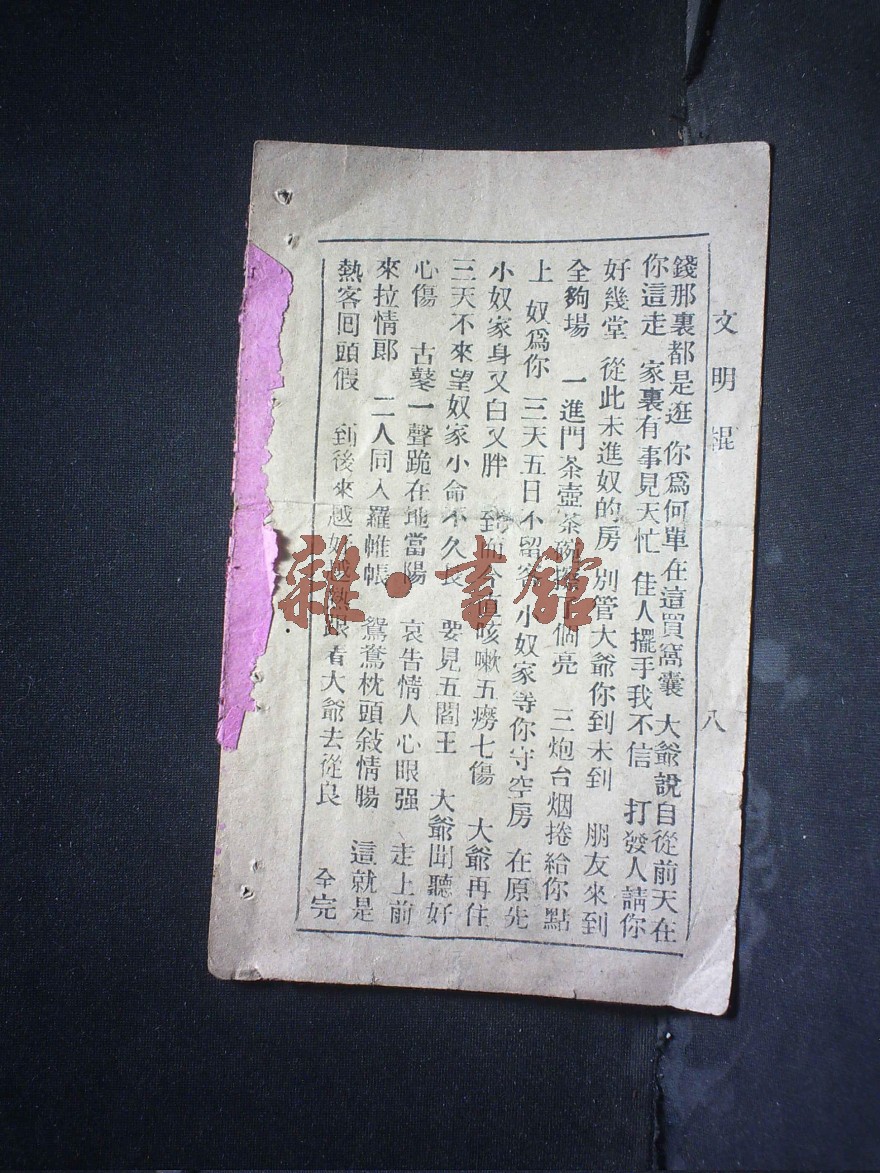 文明混
八
錢那裏都是逛 你爲何單在這買窩囊 大爺說自從前天在
你這走 家裏有事見天忙 佳人擺手我不信 打發人請你
好幾堂 從此未進奴的房 別管大爺你到未到 朋友來到
全夠場 一進門茶壺茶碗 個亮 三炮台烟捲給你點
上 奴爲你 三天五日不留客 小奴家等你守空房 在原先
小奴家身又白又胖 到而今 咳嗽五癆七傷 大爺再住
三天不來望奴家小命不久長 要見五閻王 大爺聞聽好
心傷 古鼕一聲跪在地當陽 哀告情人心眼强 走上前
來拉情郎 二人同入羅帷帳 鴛鴦枕頭敍情腸 這就是
熱客回頭假 到後來越好越熱跟着大爺去從良 全完
雜·書館